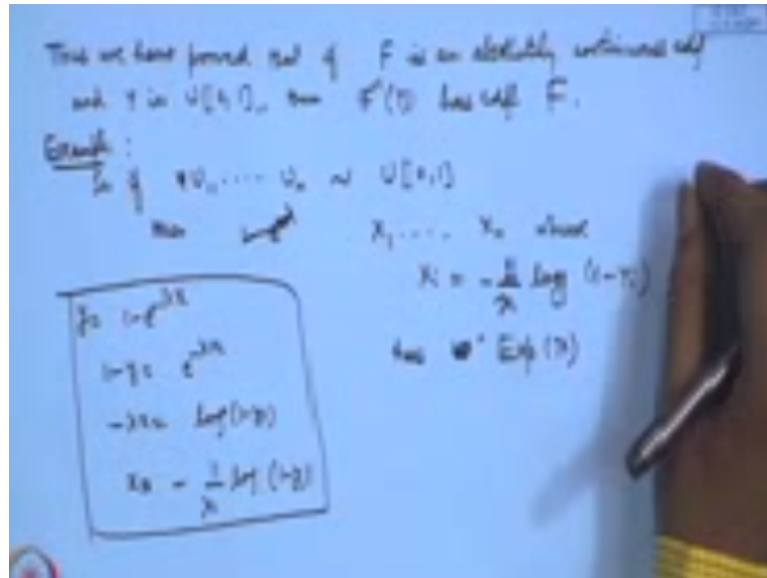 Thus we have proved that if F is an absolutely continuous cdf
and Y is U[0,1], then F⁻¹(Y) has cdf F.
Example:
So if U₁, ..... Uₙ ~ U[0,1]
then X₁ ..... Xₙ where
Xᵢ = -1/λ log (1-Yᵢ)
has Exp(λ)
y = 1-e^{-λx}
1-y = e^{-λx}
-λx = log(1-y)
x = -1/λ log(1-y)